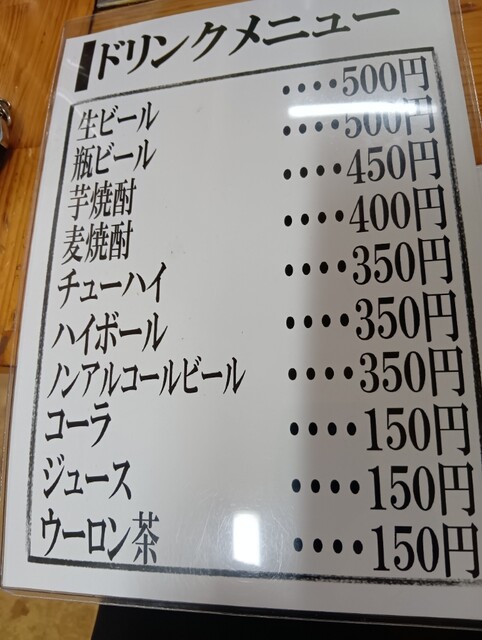 ドリンクメニュー
生ビール ････500円
瓶ビール ････500円
芋焼酎 ････450円
麦焼酎 ････400円
チューハイ ････350円
ハイボール ････350円
ノンアルコールビール ････350円
コーラ ････150円
ジュース ････150円
ウーロン茶 ････150円